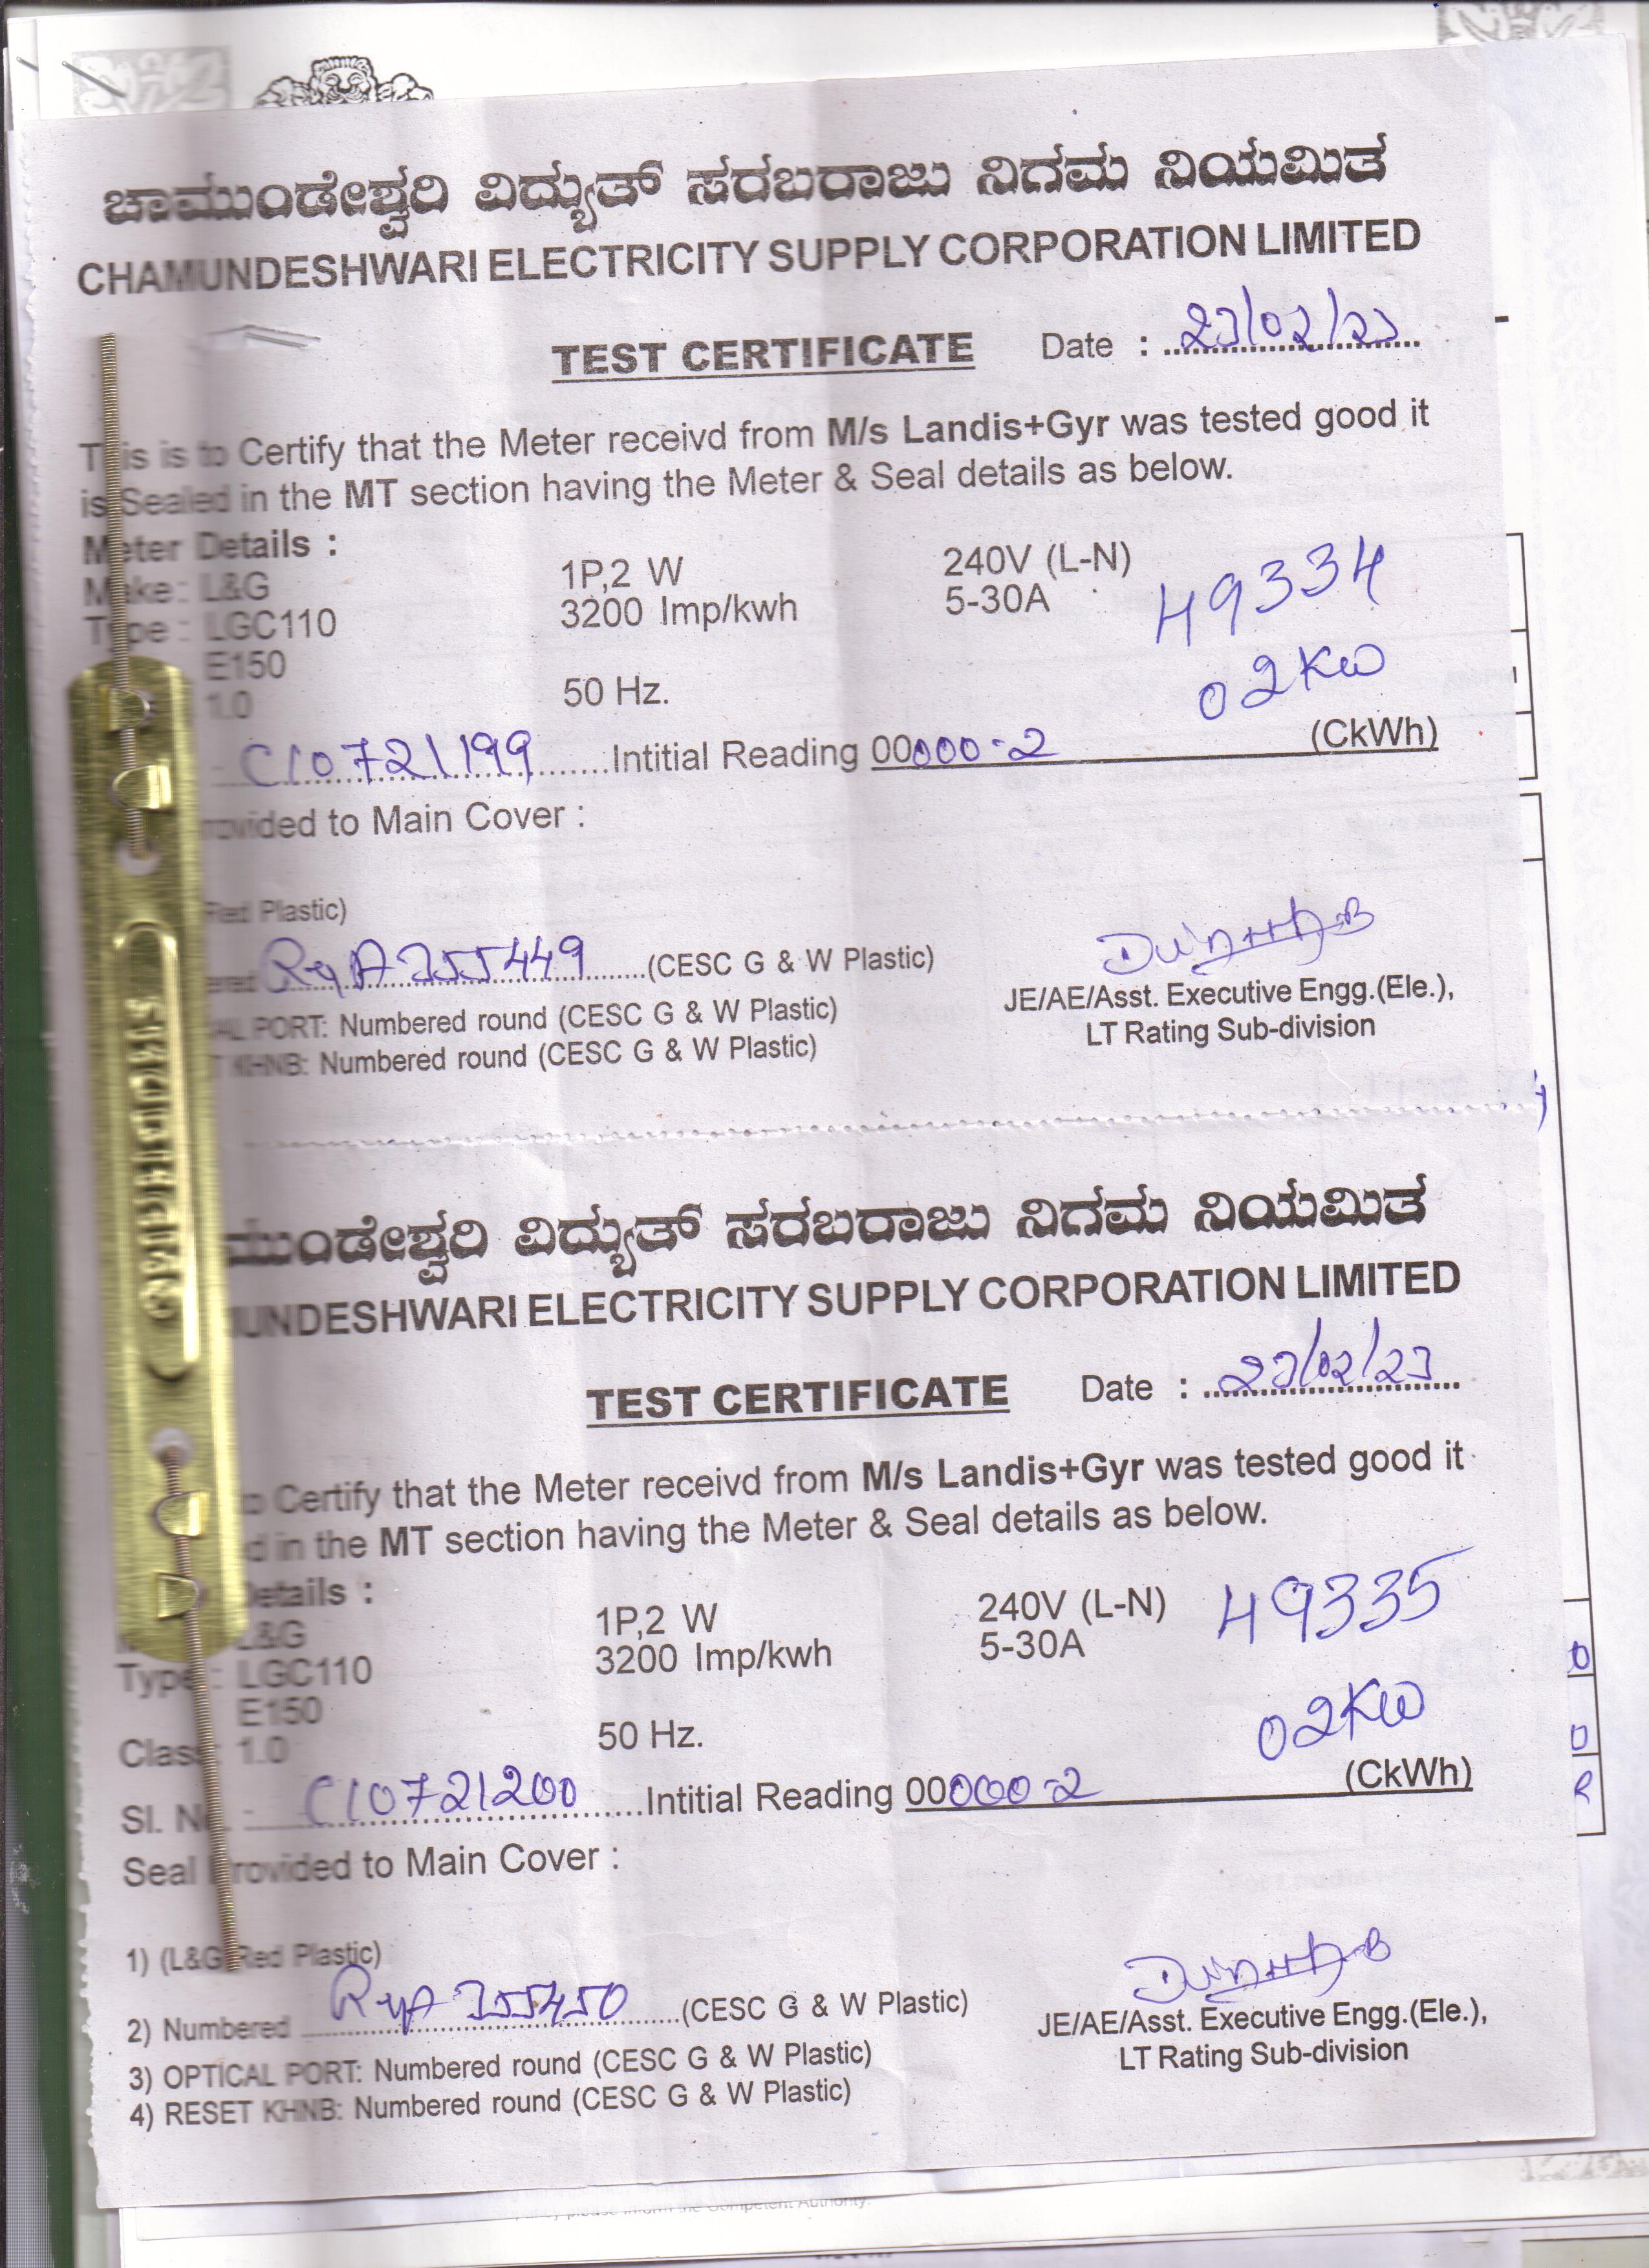 ಚಾಮುಂಡೇಶ್ವರಿ ವಿದ್ಯುತ್ ಸರಬರಾಜು ನಿಗಮ ನಿಯಮಿತ
CHAMUNDESHWARI ELECTRICITY SUPPLY CORPORATION LIMITED
TEST CERTIFICATE Date : 23/02/23
This is to Certify that the Meter receivd from M/s Landis+Gyr was tested good it
is Sealed in the MT section having the Meter & Seal details as below.
Meter Details :
Make : L&G 1P,2 W 240V (L-N) 49334
Type : LGC110 3200 Imp/kwh 5-30A
E150 02KW
1.0 50 Hz.
C10721199 Intitial Reading 00000-2 (CkWh)
ovided to Main Cover :
Red Plastic)
355449 (CESC G & W Plastic)
AL PORT: Numbered round (CESC G & W Plastic) JE/AE/Asst. Executive Engg.(Ele.),
T KHNB: Numbered round (CESC G & W Plastic) LT Rating Sub-division
CAPBRIDDRIS
ಮುಂಡೇಶ್ವರಿ ವಿದ್ಯುತ್ ಸರಬರಾಜು ನಿಗಮ ನಿಯಮಿತ
UNDESHWARI ELECTRICITY SUPPLY CORPORATION LIMITED
TEST CERTIFICATE Date : 23/02/23
to Certify that the Meter receivd from M/s Landis+Gyr was tested good it
d in the MT section having the Meter & Seal details as below.
Details :
L&G 1P,2 W 240V (L-N) 49335
Type : LGC110 3200 Imp/kwh 5-30A
E150 02KW
Class 1.0 50 Hz.
Sl. No. - C10721200 Intitial Reading 00000-2 (CkWh)
Seal Provided to Main Cover :
1) (L&G Red Plastic)
2) Numbered 355450 (CESC G & W Plastic)
3) OPTICAL PORT: Numbered round (CESC G & W Plastic) JE/AE/Asst. Executive Engg.(Ele.),
4) RESET KHNB: Numbered round (CESC G & W Plastic) LT Rating Sub-division